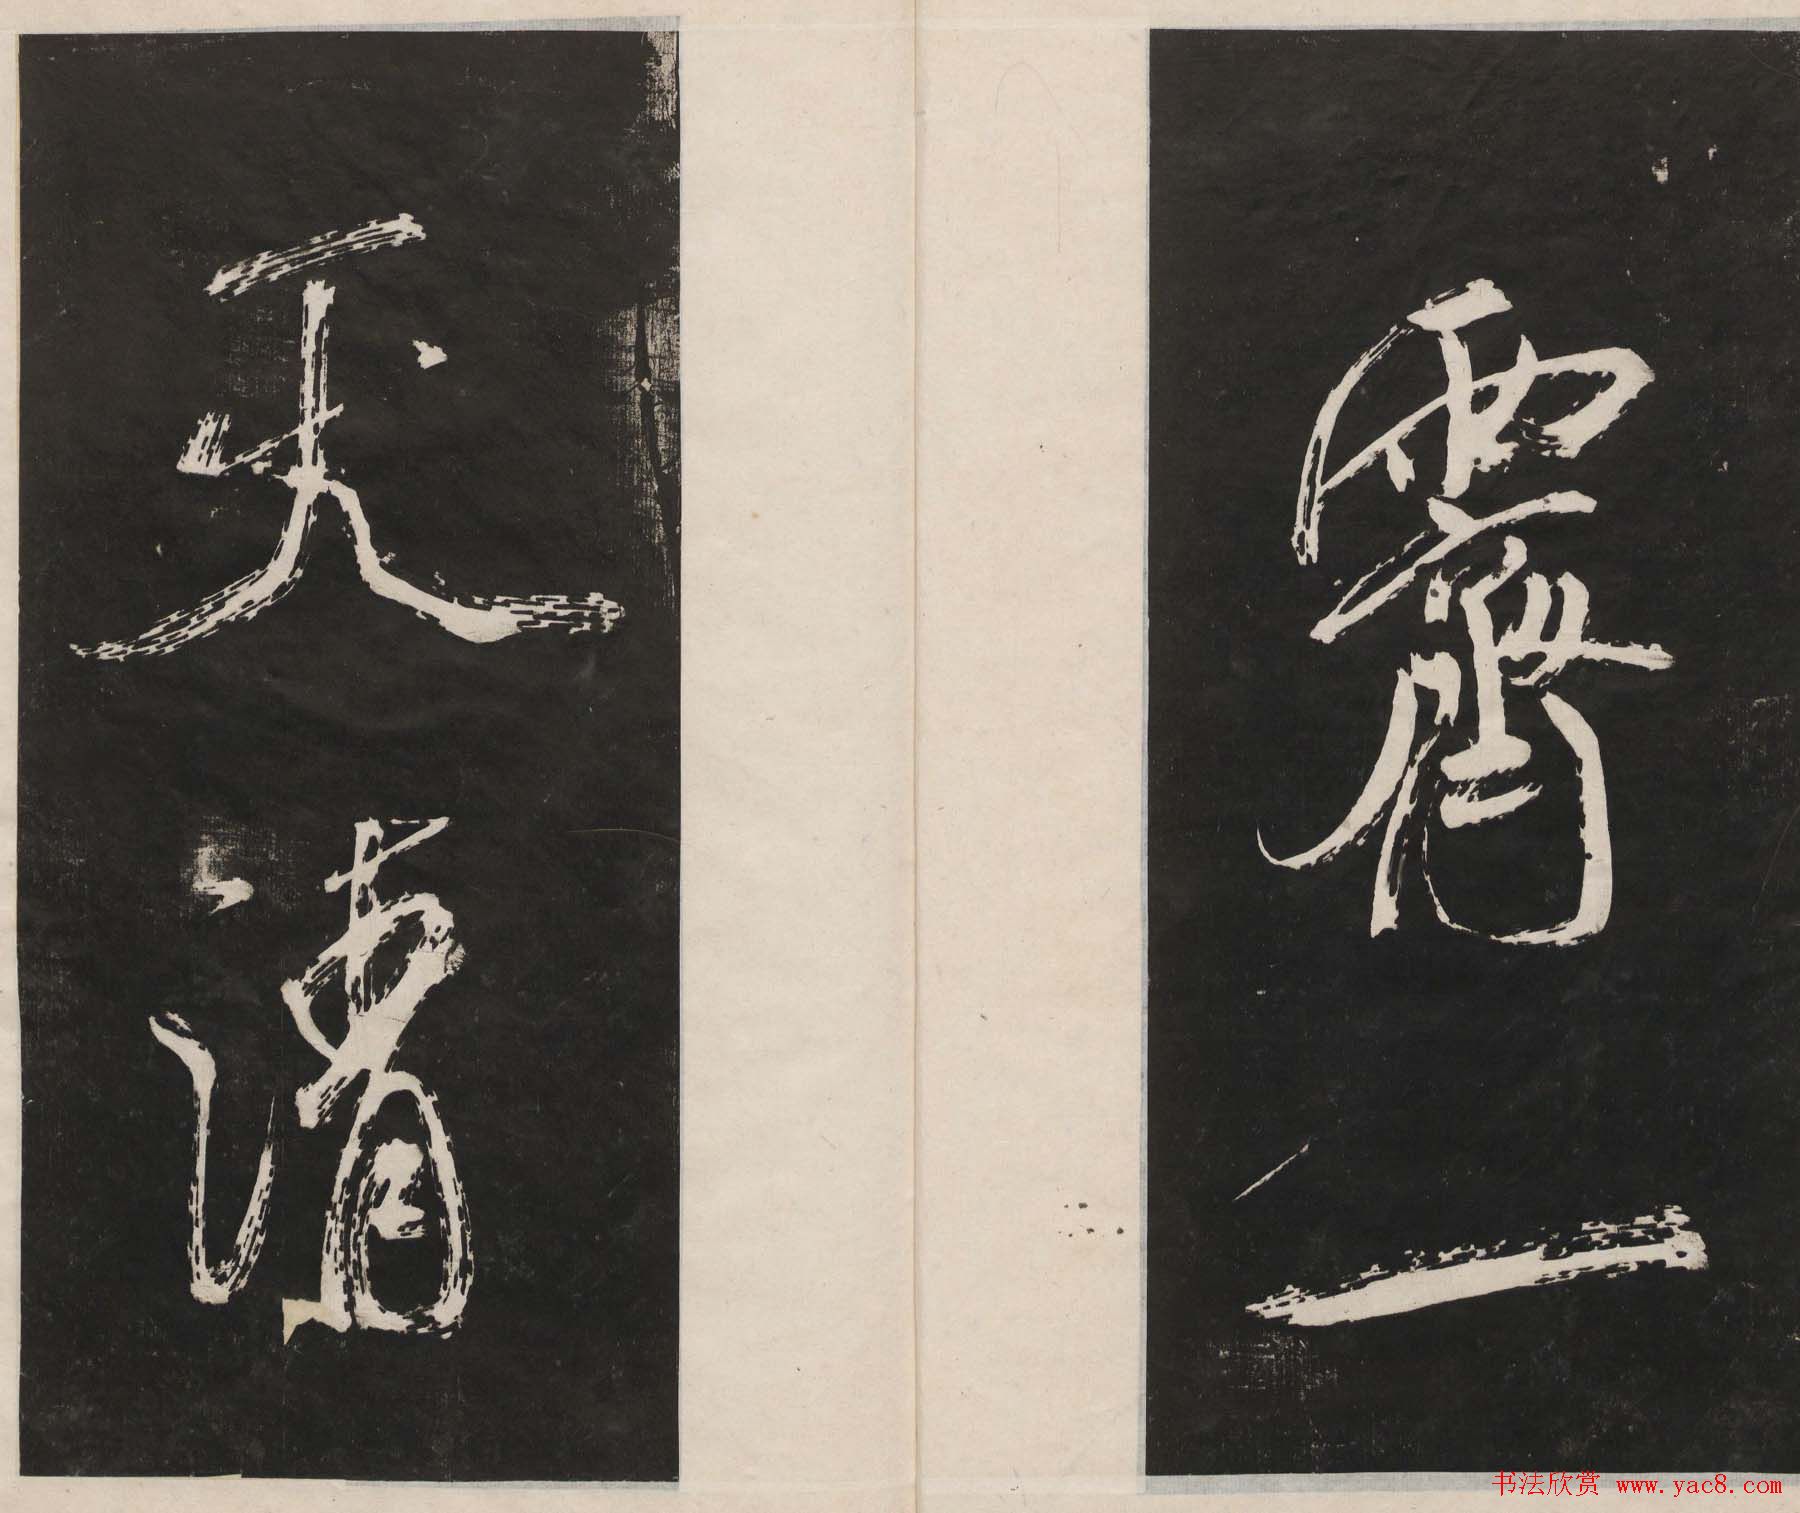 霽一
天清
书法欣赏 www.yac8.com